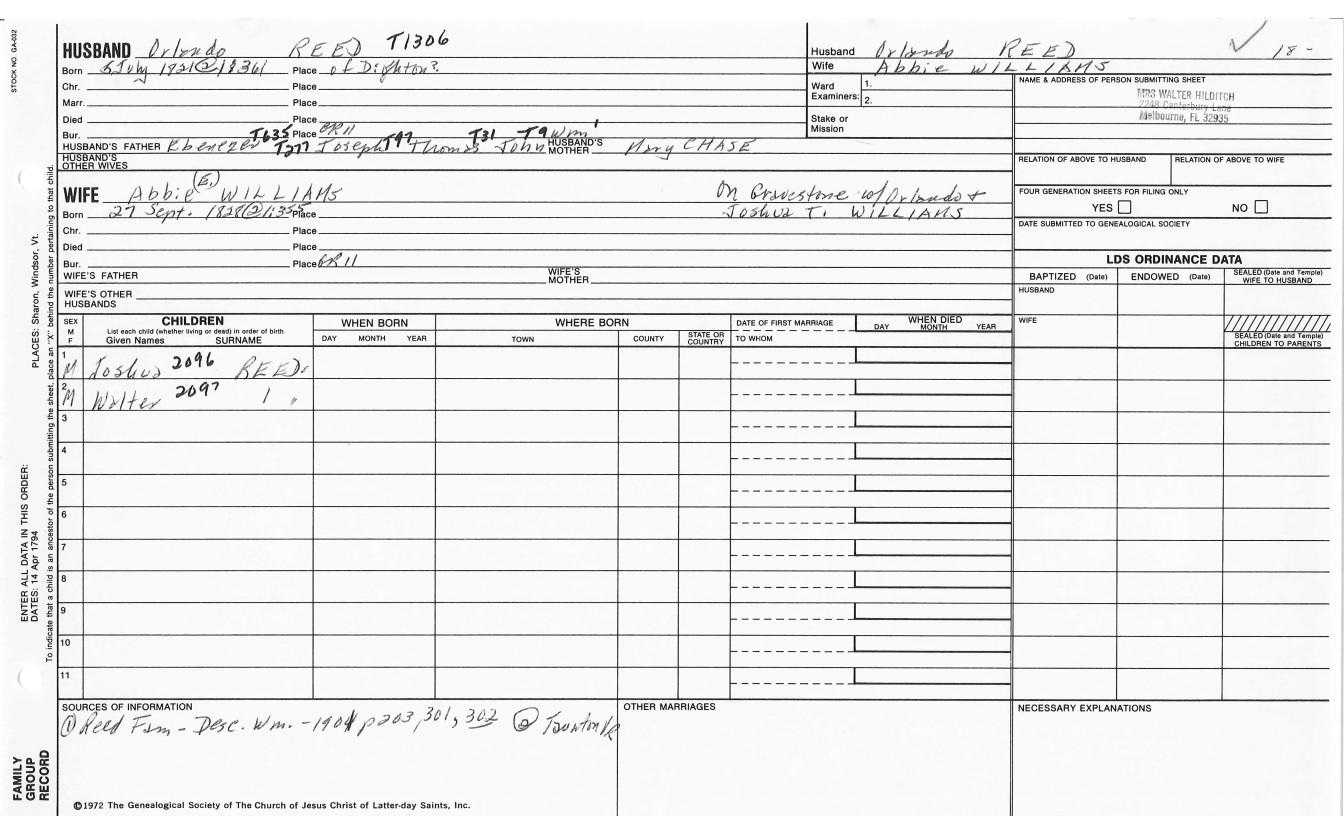 STOCK NO. GA-032
HUSBAND Orlando REED T1306
Born 5 July 1821 Place of Dighton?
Chr. Place
Marr. Place
Died Place
Bur. Place GR11
HUSBAND'S FATHER Ebenezer T635 T277 Joseph T97 Thomas T31 John T9 Wm 1 HUSBAND'S MOTHER Mary CHASE
HUSBAND'S OTHER WIVES
WIFE Abbie (E.) WILLIAMS On Gravestone w/Orlando +
Born 27 Sept. 1828 Place Joshua T. WILLIAMS
Chr. Place
Died Place
Bur. Place GR11
WIFE'S FATHER WIFE'S MOTHER
WIFE'S OTHER HUSBANDS
Husband Orlando REED 18-
Wife Abbie WILLIAMS
Ward Examiners: 1.
2.
Stake or Mission
NAME & ADDRESS OF PERSON SUBMITTING SHEET
MRS WALTER HILDITCH
2248 Canterbury Lane
Melbourne, FL 32935
RELATION OF ABOVE TO HUSBAND RELATION OF ABOVE TO WIFE
FOUR GENERATION SHEETS FOR FILING ONLY
YES NO
DATE SUBMITTED TO GENEALOGICAL SOCIETY
LDS ORDINANCE DATA
BAPTIZED (Date) ENDOWED (Date) SEALED (Date and Temple) WIFE TO HUSBAND
HUSBAND
WIFE
SEALED (Date and Temple) CHILDREN TO PARENTS
SEX M F CHILDREN WHEN BORN WHERE BORN DATE OF FIRST MARRIAGE WHEN DIED
List each child (whether living or dead) in order of birth
Given Names SURNAME DAY MONTH YEAR TOWN COUNTY STATE OR COUNTRY TO WHOM DAY MONTH YEAR
1 M Joshua 2096 REED
2 M Walter 2097 "
3
4
5
6
7
8
9
10
11
SOURCES OF INFORMATION
① Reed Fam - Desc. Wm. - 1901 p203, 301, 302 ② Taunton VR
OTHER MARRIAGES
NECESSARY EXPLANATIONS
©1972 The Genealogical Society of The Church of Jesus Christ of Latter-day Saints, Inc.
PLACES: Sharon, Windsor, Vt.
ENTER ALL DATA IN THIS ORDER:
DATES: 14 Apr 1794
To indicate that a child is an ancestor of the person submitting the sheet, place an "X" behind the number pertaining to that child.
FAMILY GROUP RECORD